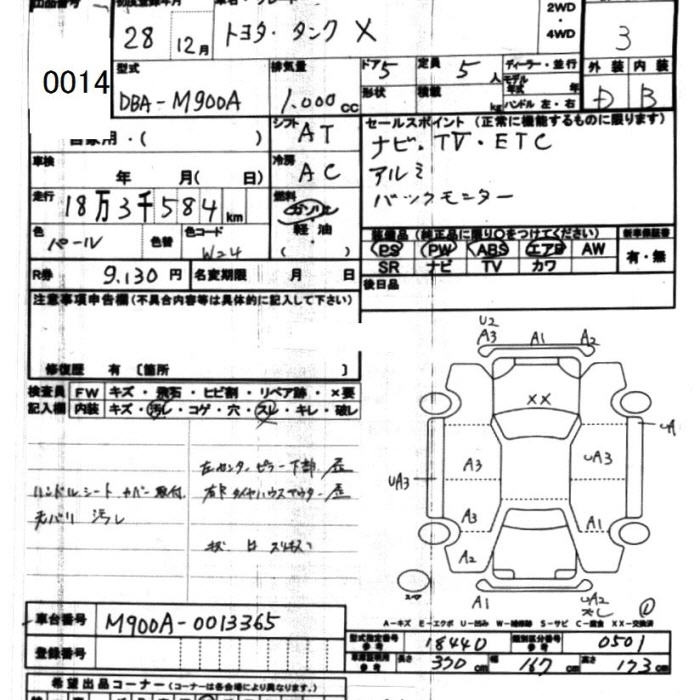 初度登録年月
28 12月 トヨタ・タンク X
2WD・4WD
3
0014
型式 DBA-M900A
排気量 1.000cc
ドア 5 定員 5人
形状 積載 kg
ディーラー・並行
モデル年式 年
ハンドル 左・右
外装 内装
D B
自家用・( )
シフト AT
冷房 AC
セールスポイント (正常に機能するものに限ります)
ナビ・TV・ETC
アルミ
バックモニター
車検 年 月( 日)
走行 18万3千584km
燃料 ガソリン 軽油 ( )
色 パール 色替 色コード W24
装備品(純正品に限り○をつけてください) 新車保証書
PS PW ABS エアB AW 有・無
SR ナビ TV カワ
R券 9.130円 名変期限 月 日
後日品
注意事項申告欄(不具合内容等は具体的に記入して下さい)
修復歴 有 [箇所 ]
検査員記入欄
FW キズ・飛石・ヒビ割・リペア跡・×要
内装 キズ・汚レ・コゲ・穴・スレ・キレ・破レ
左センターピラー下部 歪
ハンドル シート カバー取付
汚レ
U2 A1 A2
XX
A3 UA3 UA
UA3
A3 A1
A2
スペア
A1 UA2
A-キズ E-エクボ U-凹み W-補修跡 S-サビ C-腐食 XX-交換済
車台番号 M900A-0013365
登録番号
型式指定番号 参考 18440 類別区分番号 参考 0501
車庫証明用 参考 長さ 370cm 幅 167cm 高さ 173cm
希望出品コーナー(コーナーは各会場により異なります。)